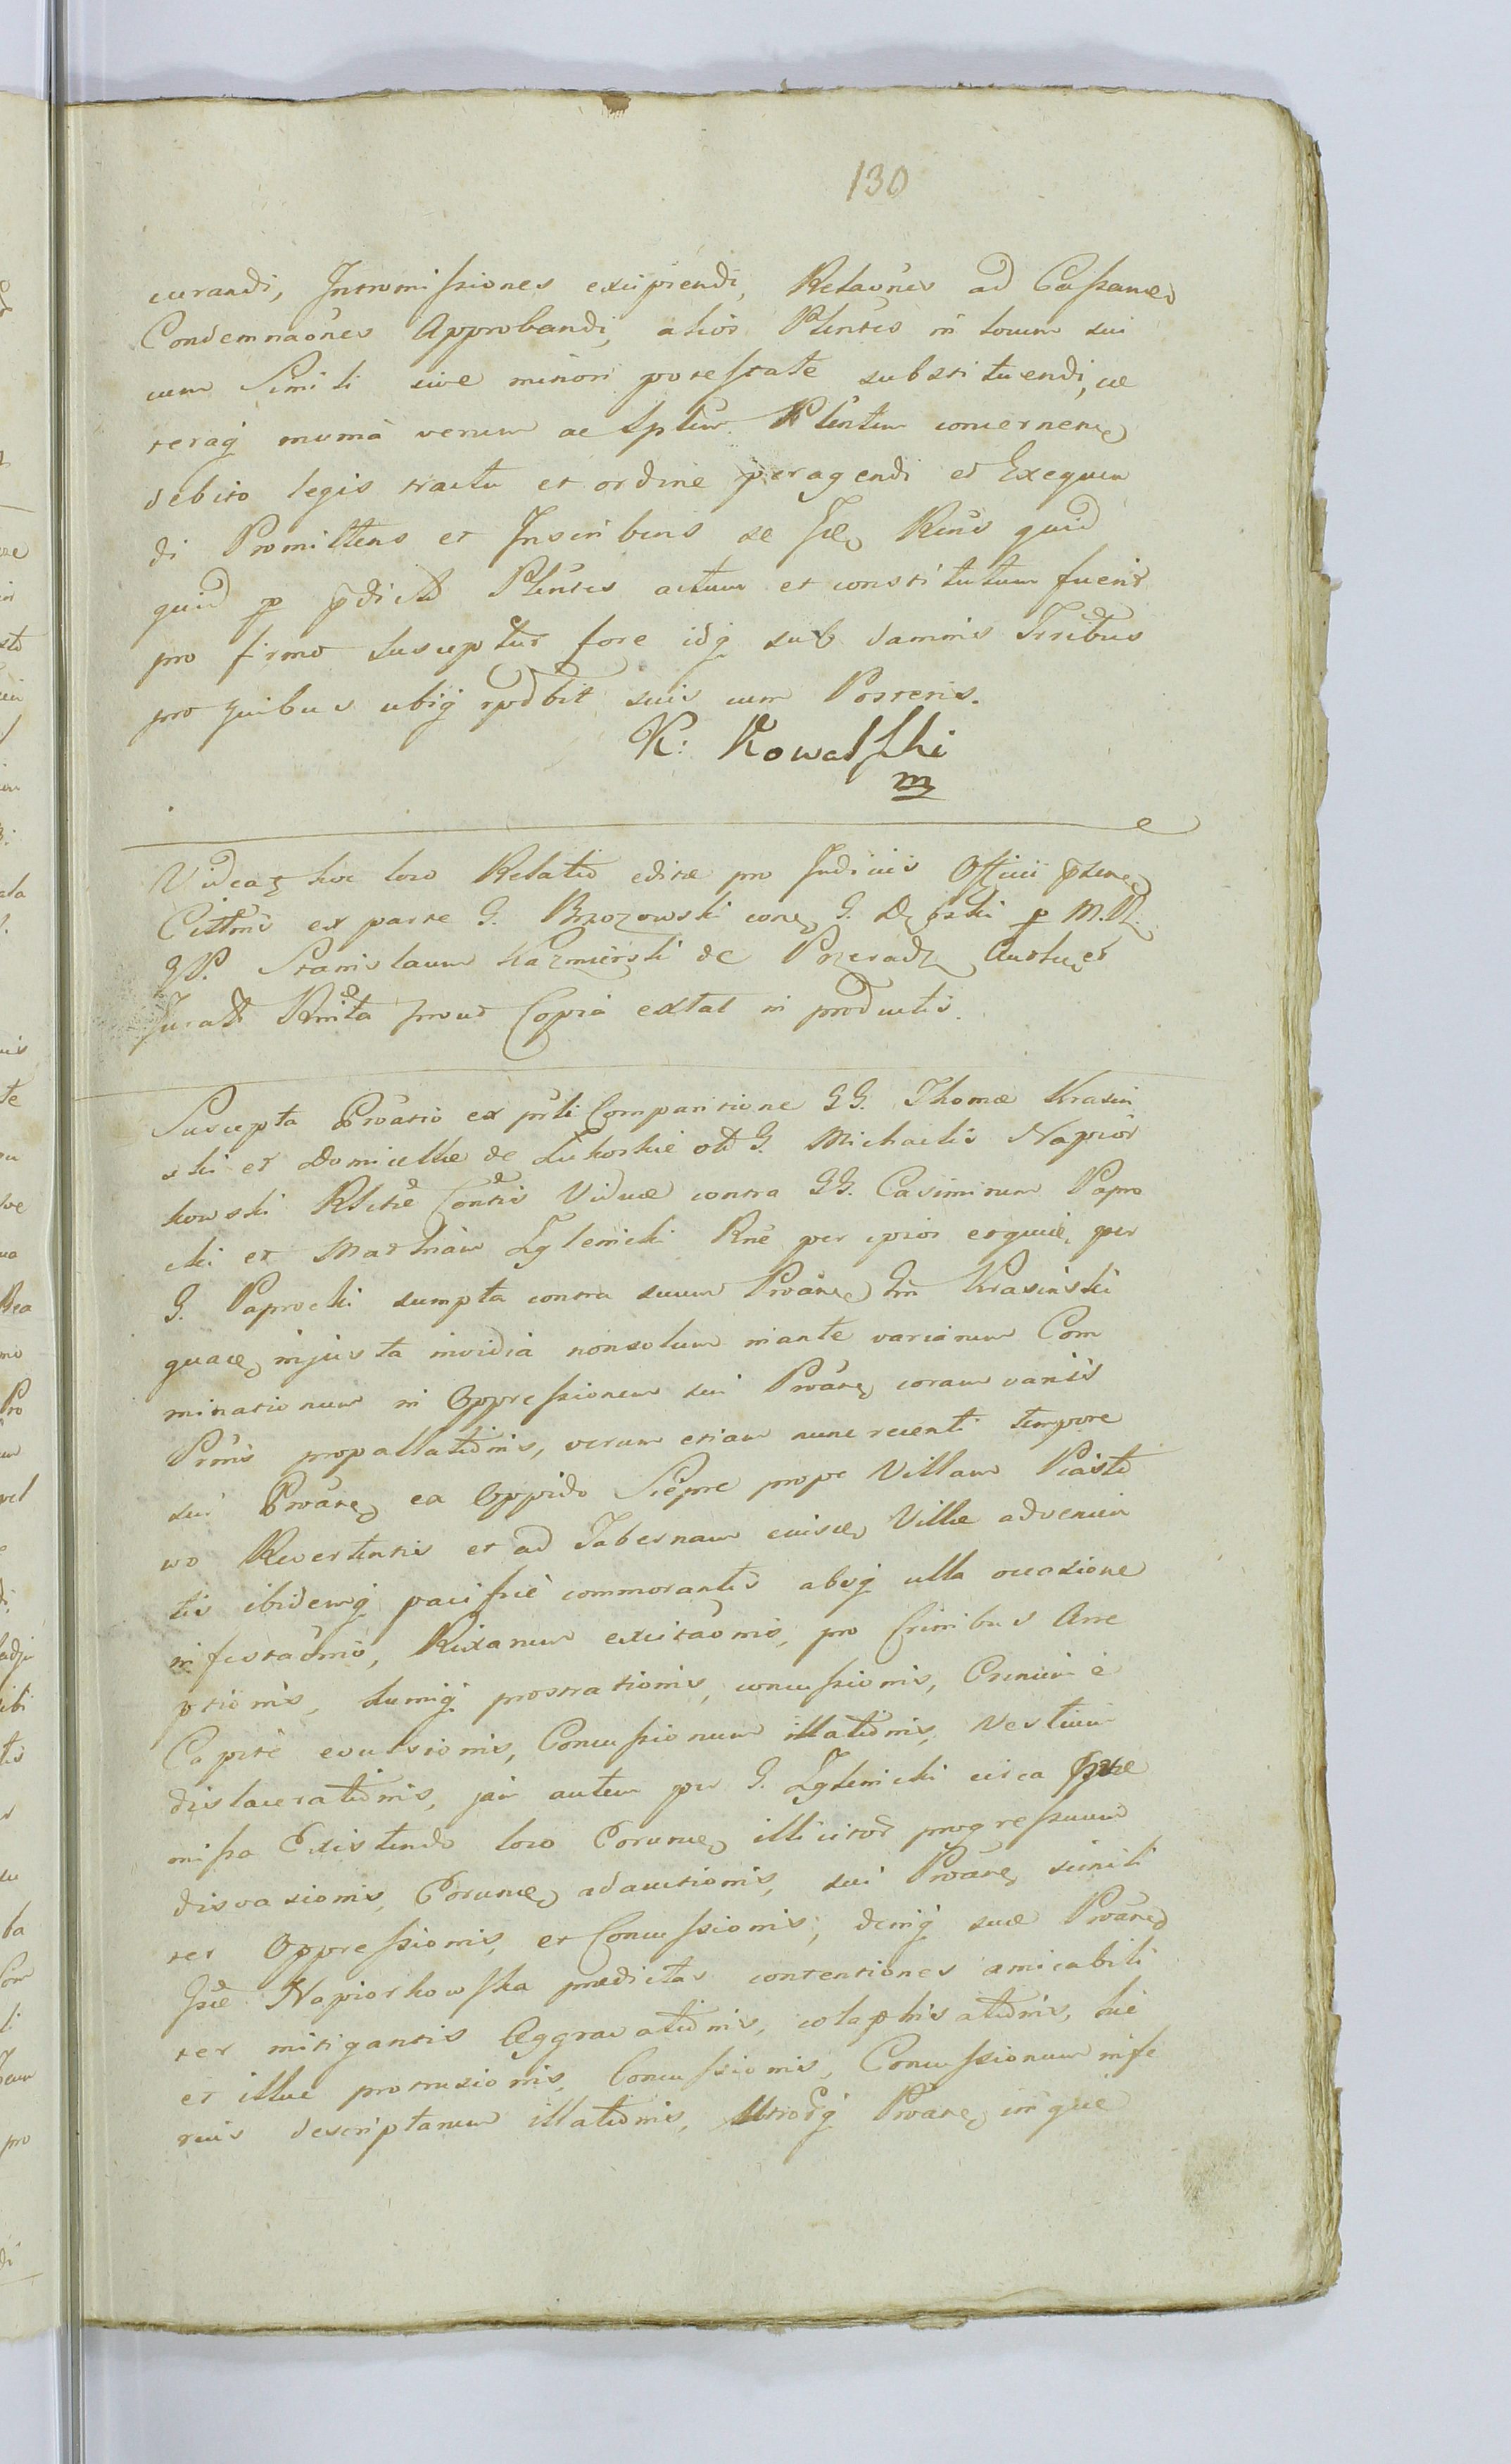 130
curandi, Intromissiones excipiendi, Relaones ad Cassanes
Condemnaones Approbandi, alios Plentes in locum sui
cum Simili sive minori potestate substituendi, cæ
teraq munia verum ac Spleur Plentem concernen
debito legis tractu et ordine peragendi et Exequen
di Promittens et Inscribens se Ise Rens quid
quid p pdict Plentes actum et constitutum fuerit
pro firmo suscepturd fore idq sub damnis Trribus
pro quibus ubiq rpdbit suis cum Posteris.
K: Kowalski
m
Videaz hoc loco Relatio editæ pro Judiciis Officii
Cittnis ex parte G. Brzozowski con G. p M. D.
G. P. Stanislaum Kazmierski de Przeradz et
Jurat Rnita prout Copia extat in productis.
Suscepta Proatio ex prli Comparitione GG. Thomæ Krasin
ski et Domicellæ de Lukoskie otd G. Michaelis Napior
kowski Rlictæ Contis Viduæ contra GG. Casimirum Papro
cki et Mathiam Zglenicki Rne per ipsos eoque, per
G. Paprocki sumpta contra suum Proane Gm Krasinski
quace injusta invidia nonsolum inante variarum Com
minationum in Oppressionem sui Proane coram variis
Prnis propallationis, verum etiam nunc recenti tempore
sui Proane ex Oppido Sierpc prope Villam Piasto
wo Revertentis et ad Tabernam eiusce Villæ advenien
tis ibidemq pacifice commorantis absq ulla occasione
infestaonis, Rixarum excitaonis, pro Crinibus Arre
ptionis, humiq prostrationis, concussionis, Crinium è
Capite evulsionis, Concussionum illationis, Vestium
dislacerationis, jam autem per G. Zglenicki circa præ
missa Existendo loco illicitor progressuum
disvasionis, adauctionis, sui Proane simili
ter Oppressionis, et Concussionis, demq suæ Proane
Gsæ Napiorkowska prædictas contentiones amicabili
ter mitigantis Aggravationis, colaphisationis, huc
et illuc protrusionis, Concussionis, Concussionum infe
rius descriptarum illationis, Utrorq Proane inque